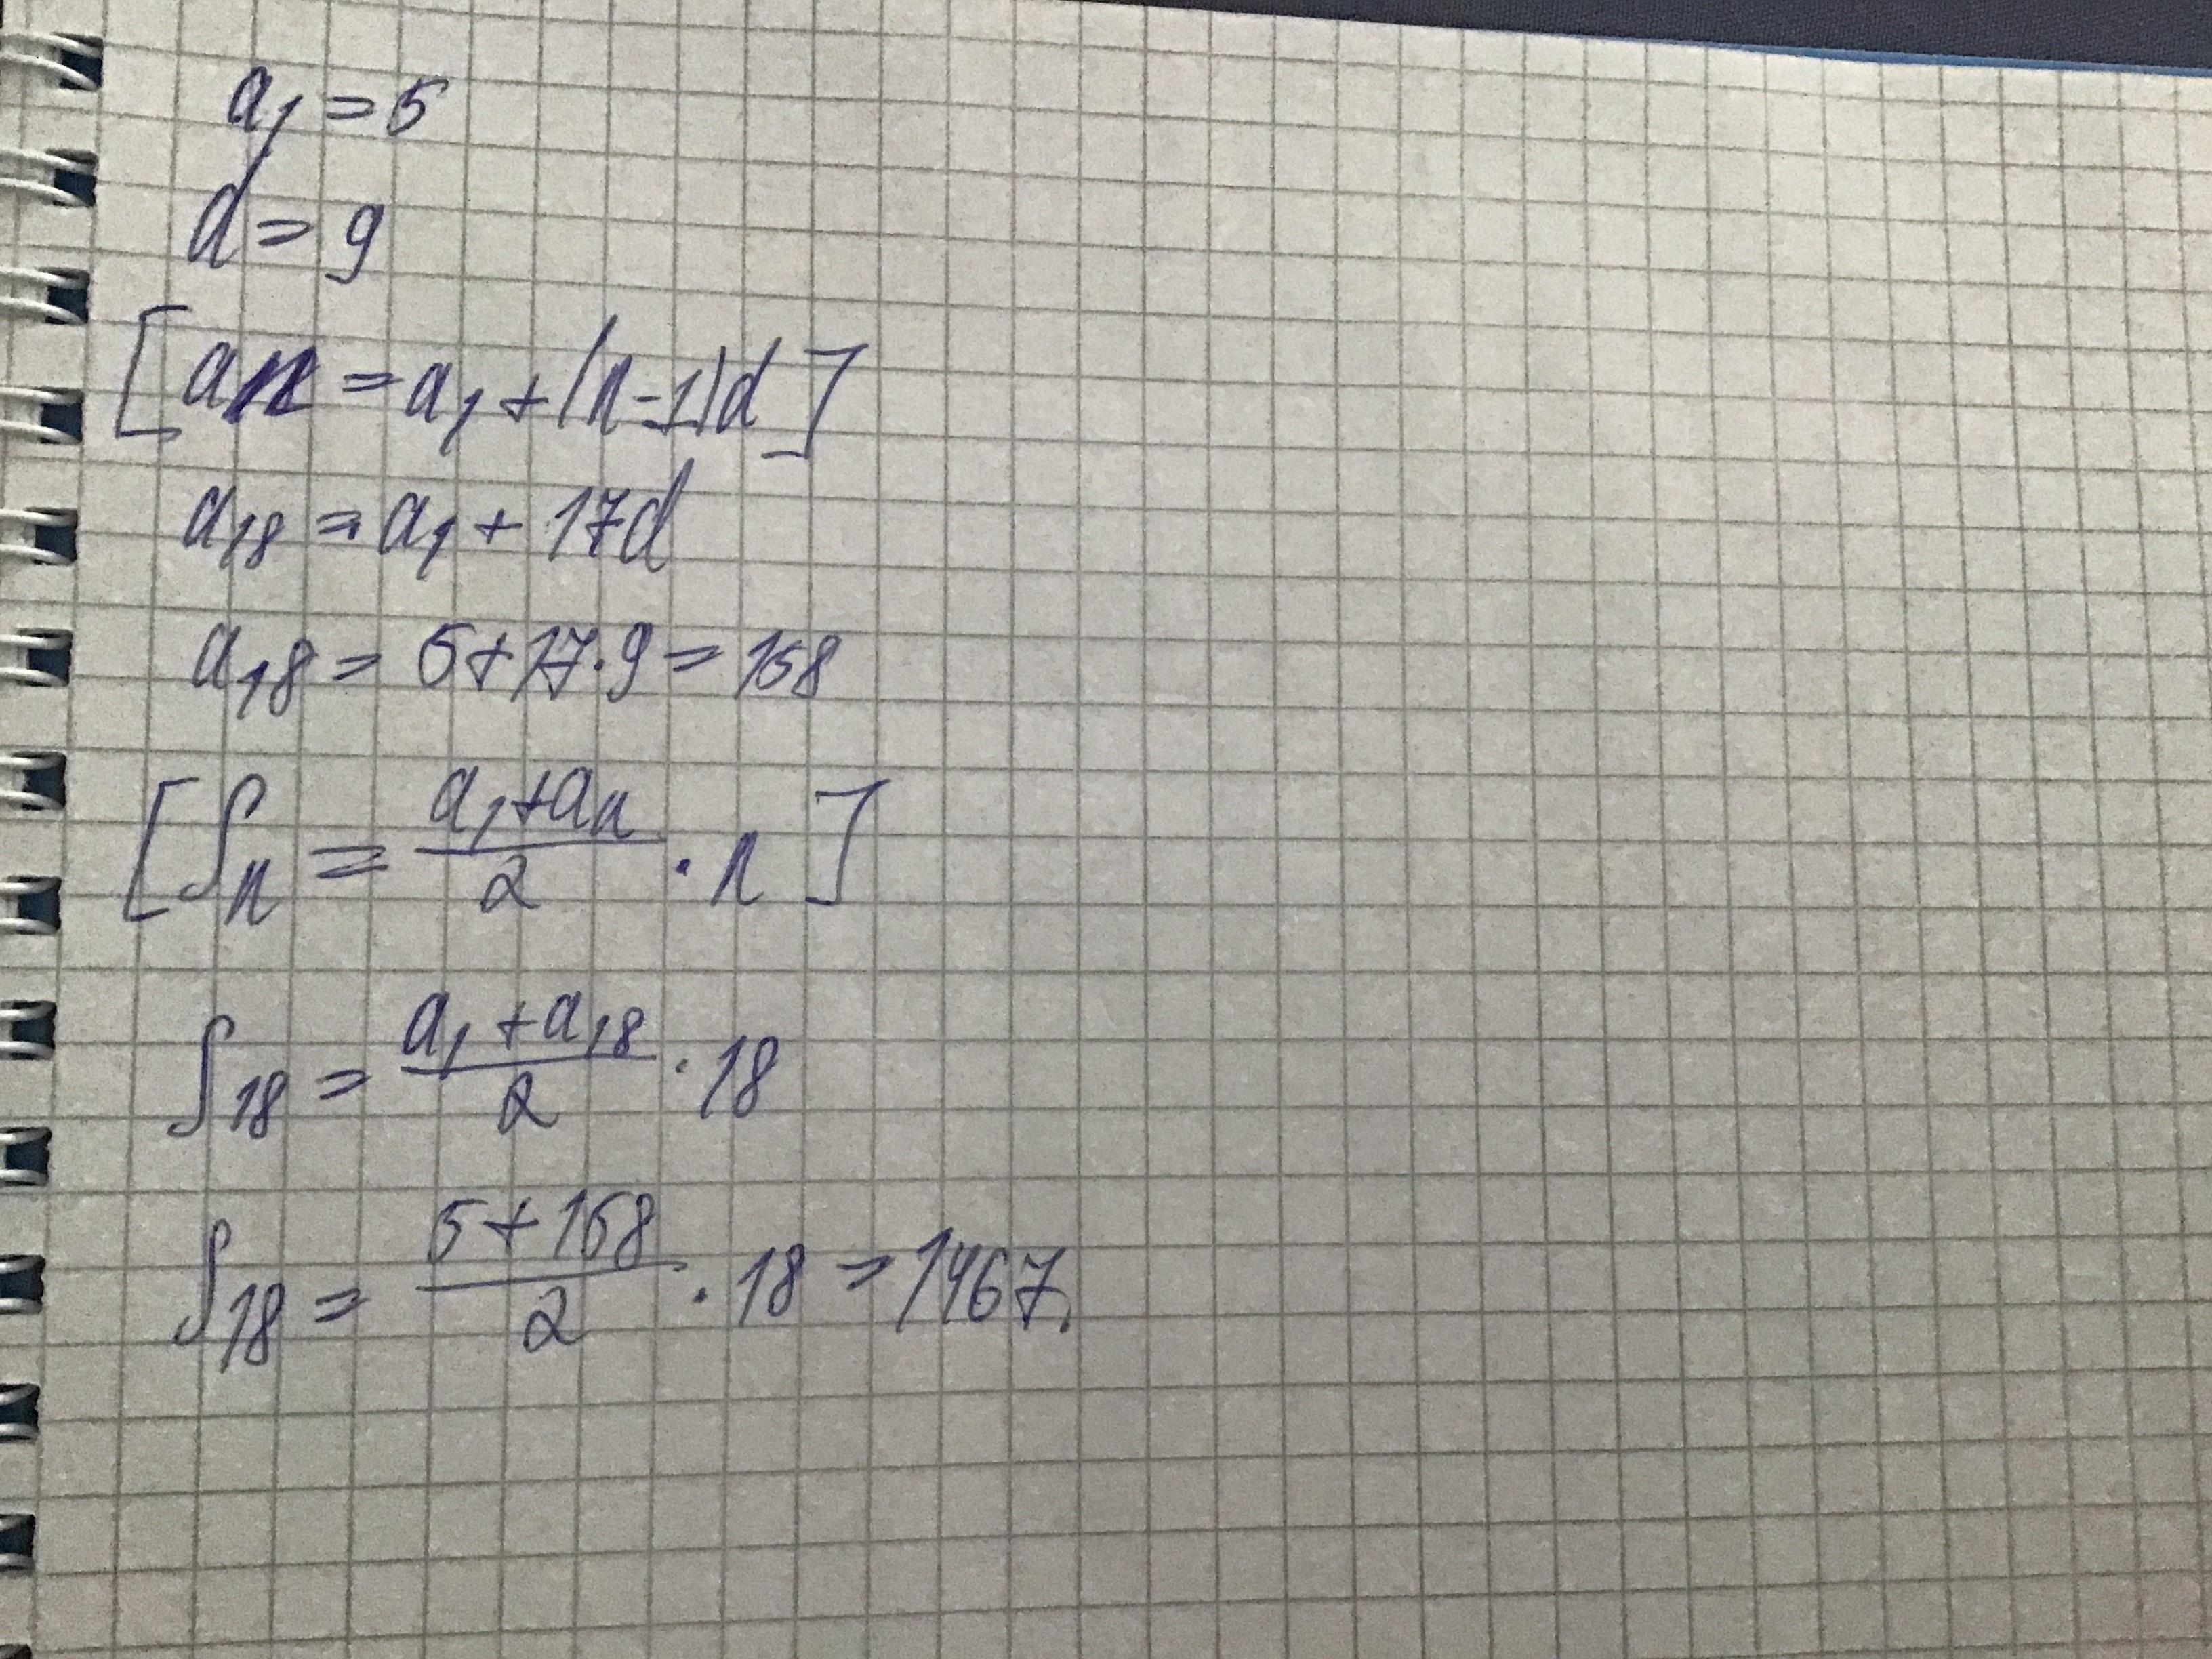 a₁ = 5
d = 9
[an = a₁ + (n-1)d]
a₁₈ = a₁ + 17d
a₁₈ = 5+17·9 = 158
[Sₙ = (a₁+aₙ)/2 · n]
S₁₈ = (a₁+a₁₈)/2 · 18
S₁₈ = (5+158)/2 · 18 = 1467.